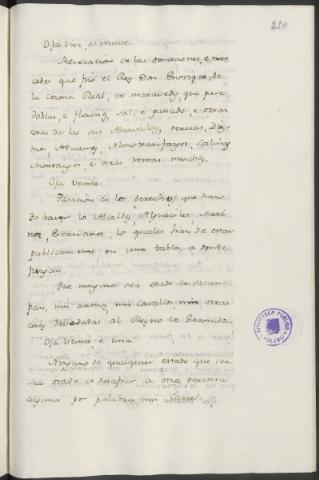 210
Oja diez, e nueve
Revocacion de las donaciones, e mer
cedes que fizo el Rey Don Enrique, de
la Corona Real, de maravedis, que pare
doblas, e florines, sal, e ganado, e otras
cosas de las sus Alcavalas, tercias, Diez
mos Aduanas, Almoxarifazgos, Salinas
Montazgos, e otras rentas muchas.
Oja veinte.
Tasacion de los derechos que han
de haver los Alcaldes, Alguaciles, Meri
nos, Escrivanos, los quales han de estar
publicamente en una tabla, a donde
sepan.
Que ninguno sea osado de sacar
pan, nin armas, nin cavallos nin otras
cosas debedadas al Reyno de Granada.
Oja veinte e una
Ninguno de qualquier estado que sea
sea osado de desafiar a otra persona
alguna por palabra, nin
BIBLIOTECA PUBLICA
TOLEDO